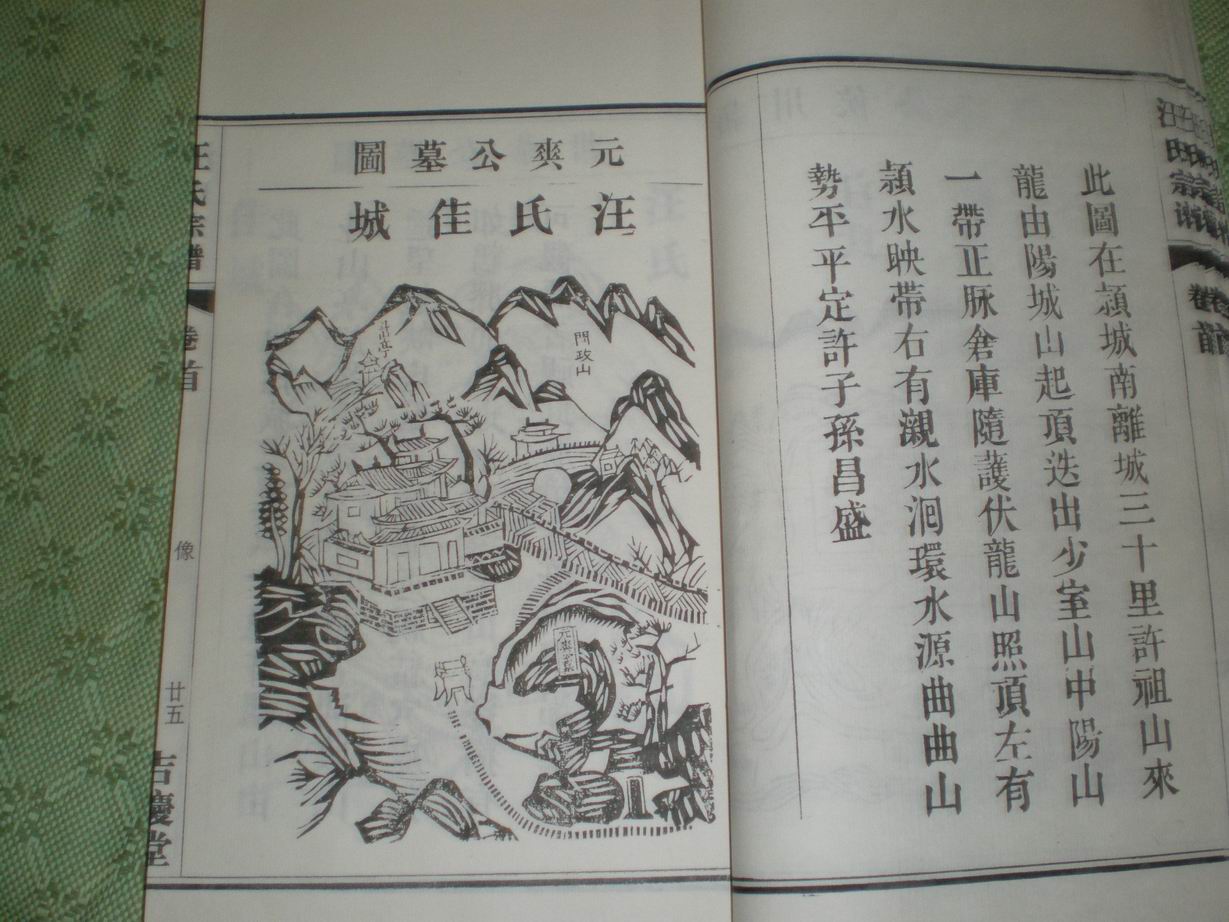 汪氏宗譜
卷首
此圖在潁城南離城三十里許祖山來
龍由陽城山起頂迭出少室山中陽山
一帶正脉倉庫隨護伏龍山照頂左有
潁水映帶右有瀙水洄環水源曲曲山
勢平平定許子孫昌盛
元爽公墓圖
汪氏佳城
開政山
元爽公墓
汪氏宗譜
卷首
像
廿五
吉慶堂